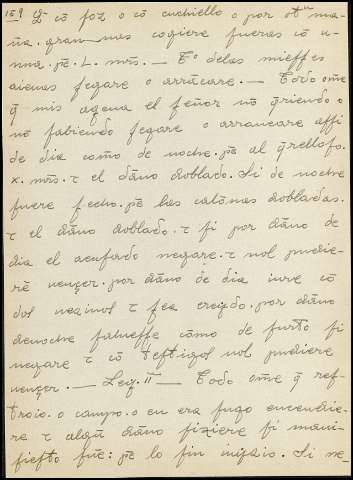 159 Q̃ cõ foz o cõ cuchiello o por otᵃ ma-
ña. gran uvas cogiere fueras cõ u-
nna. pẽ. L. mr̃s. — Tº delas mieffes
aienas fegare o arrãcare. — Todo om̃e
q̃ mis agena el feñor nõ q̃riendo o
nõ fabiendo fegare o arrancare affi
de dia como de noche. pẽ al q̃rellofo.
x. mr̃s. τ el dãno doblado. Si de noche
fuere fecho. pẽ las calonas dobladas.
τ el dãno doblado. τ fi por dãno de
dia el acufado negare. τ nol pudie-
rẽ uençer. por dãno de dia iure cõ
dos uezinos τ fea creydo. por dãno
denoche falueffe cõmo de furto fi
negare τ cõ teftigos nol pudiere
uençer. — Ley. II — Todo om̃e q̃ ref-
troio. o campo. o en era fuego encendie-
re τ algũ dãno fiziere fi mani-
fiefto fue: pẽ lo fin iuizio. Si ne-